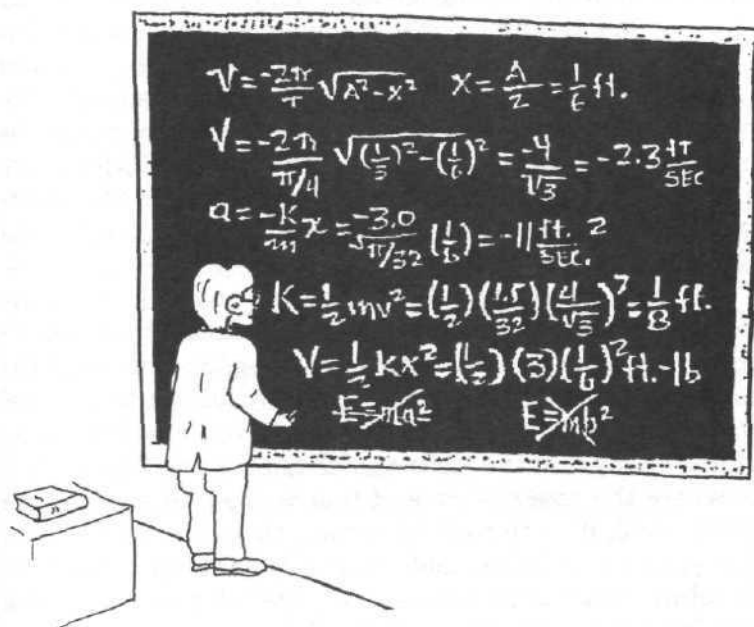 V = -2π/T √A²-x² x = A/2 = 1/6 ft.
V = -2π/π/4 √(1/3)²-(1/6)² = -4/√3 = -2.3 ft/SEC
a = -K/m x = -3.0/π/32 (1/6) = -11 ft./SEC. 2
K = 1/2 mv² = (1/2) (1.5/32) (4/√3)² = 1/8 ft.
V = 1/2 Kx² = (1/2) (3) (1/6)² ft.-lb
E=ma² E=mb²